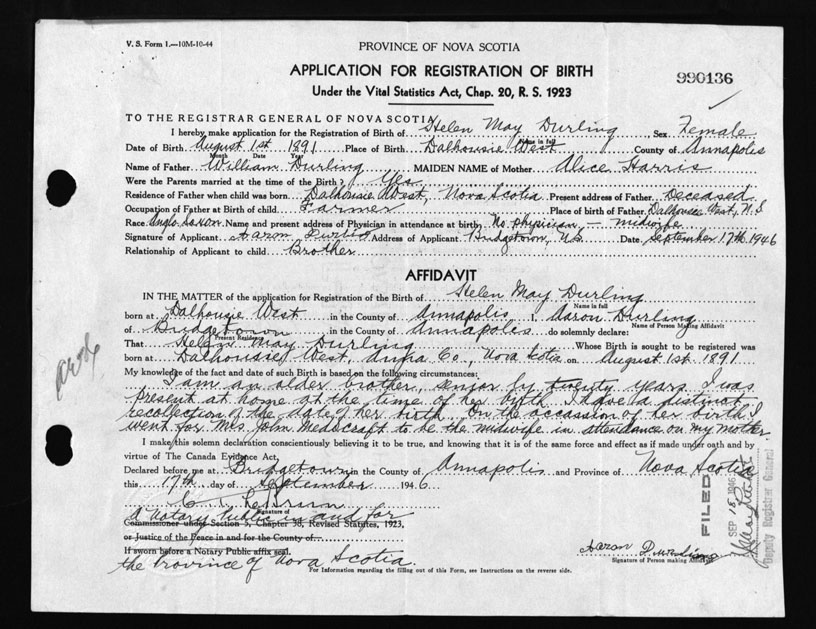 V. S. Form 1.—10M-10-44
PROVINCE OF NOVA SCOTIA
APPLICATION FOR REGISTRATION OF BIRTH
990136
Under the Vital Statistics Act, Chap. 20, R. S. 1923
TO THE REGISTRAR GENERAL OF NOVA SCOTIA
I hereby make application for the Registration of Birth of Helen May Durling, Sex Female
Name in full
Date of Birth August 1st 1891 Place of Birth Dalhousie West County of Annapolis
Month Date Year
Name of Father William Durling MAIDEN NAME of Mother Alice Harris
Were the Parents married at the time of the Birth? Yes
Residence of Father when child was born Dalhousie West, Nova Scotia Present address of Father Deceased
Occupation of Father at Birth of child Farmer Place of birth of Father Dalhousie West, N. S
Race Anglo Saxon Name and present address of Physician in attendance at birth No physician, — midwife
Signature of Applicant Aaron Durling Address of Applicant Bridgetown, N.S. Date September 17th 1946
Relationship of Applicant to child Brother
AFFIDAVIT
IN THE MATTER of the application for Registration of the Birth of Helen May Durling
Name in full
born at Dalhousie West in the County of Annapolis I Aaron Durling
Name of Person Making Affidavit
of Bridgetown in the County of Annapolis do solemnly declare:
Present Residence
That Helen May Durling Whose Birth is sought to be registered was
born at Dalhousie West, Anna Co., Nova Scotia on August 1st 1891
My knowledge of the fact and date of such Birth is based on the following circumstances:
I am an older brother, senior by twenty years. I was
present at home at the time of her birth. I have a distinct
recollection of the date of her birth. On the occassion of her birth I
went for Mrs. John Medicraft to be the midwife in attendance on my mother.
I make this solemn declaration conscientiously believing it to be true, and knowing that it is of the same force and effect as if made under oath and by
virtue of The Canada Evidence Act,
Declared before me at Bridgetown in the County of Annapolis and Province of Nova Scotia
this 17th day of September 1946
Signature of
A notary public in and for
Commissioner under Section 5, Chapter 38, Revised Statutes, 1923,
or Justice of the Peace in and for the County of
If sworn before a Notary Public affix seal.
the Province of Nova Scotia.
Aaron Durling
Signature of Person making Affidavit
For Information regarding the filling out of this Form, see Instructions on the reverse side.
FILED
SEP 18 1946
Deputy Registrar General